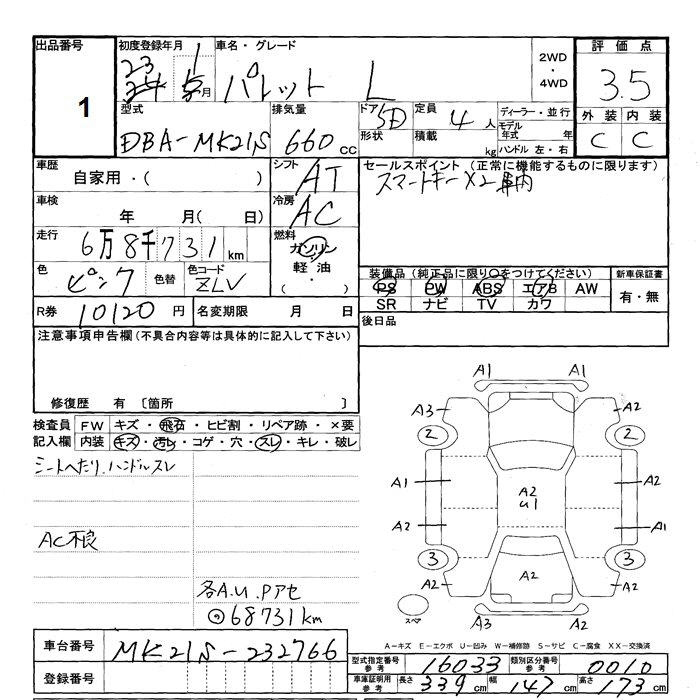 出品番号 初度登録年月 車名・グレード 2WD・4WD 評価点
1 23 年 1 月 パレット L 3.5
型式 排気量 ドア 5D 定員 4 人 ディーラー・並行 外装 内装
DBA-MK21S 660 cc 形状 積載 kg モデル年式 年 ハンドル 左・右 C C
車歴 シフト AT セールスポイント (正常に機能するものに限ります)
自家用・( ) スマートキー×2 車内
車検 冷房 AC
年 月( 日)
走行 6万8千731km 燃料 ガソリン
軽油
・( )
色 ピンク 色替 色コード ZLV 装備品(純正品に限り○をつけてください) 新車保証書
PS PW ABS エアB AW 有・無
SR ナビ TV カワ
R券 10120 円 名変期限 月 日 後日品
注意事項申告欄(不具合内容等は具体的に記入して下さい)
修復歴 有 〔箇所 〕
検査員 FW キズ・飛石・ヒビ割・リペア跡・×要
記入欄 内装 キズ・汚レ・コゲ・穴・スレ・キレ・破レ
シートヘたり、ハンドルスレ
AC不良
各A.U.Pアセ
◎68731km
A1 A1
A3 A2
2 2
A1 A2 U1 A2
A2 A1
3 3
A2 A2 A2
A2
スペア
A-キズ E-エクボ U-凹み W-補修跡 S-サビ C-腐食 XX-交換済
車台番号 MK21S-232766 型式指定番号 参考 16033 類別区分番号 参考 0010
登録番号 車庫証明用 参考 長さ 339 cm 幅 147 cm 高さ 173 cm